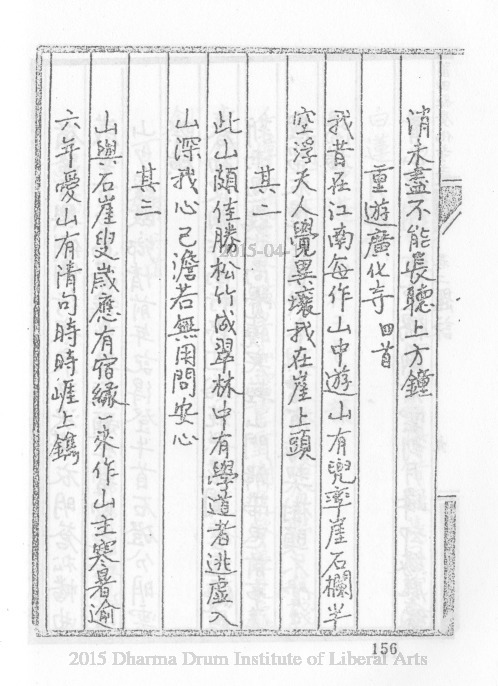 消未盡不能長聽上方鐘
重遊廣化寺四首
我昔在江南每作山中遊山有兜率崖石欄半
空浮天人覺異壤我在崖上頭
其二
此山頗佳勝松竹成翠林中有學道者逃虛入
山深我心已澹若無用問安心
其三
山與石崖叟歲應有宿緣一來作山主寒暑逾
六年愛山有清句時時崖上鐫
2015-04-
156
2015 Dharma Drum Institute of Liberal Arts